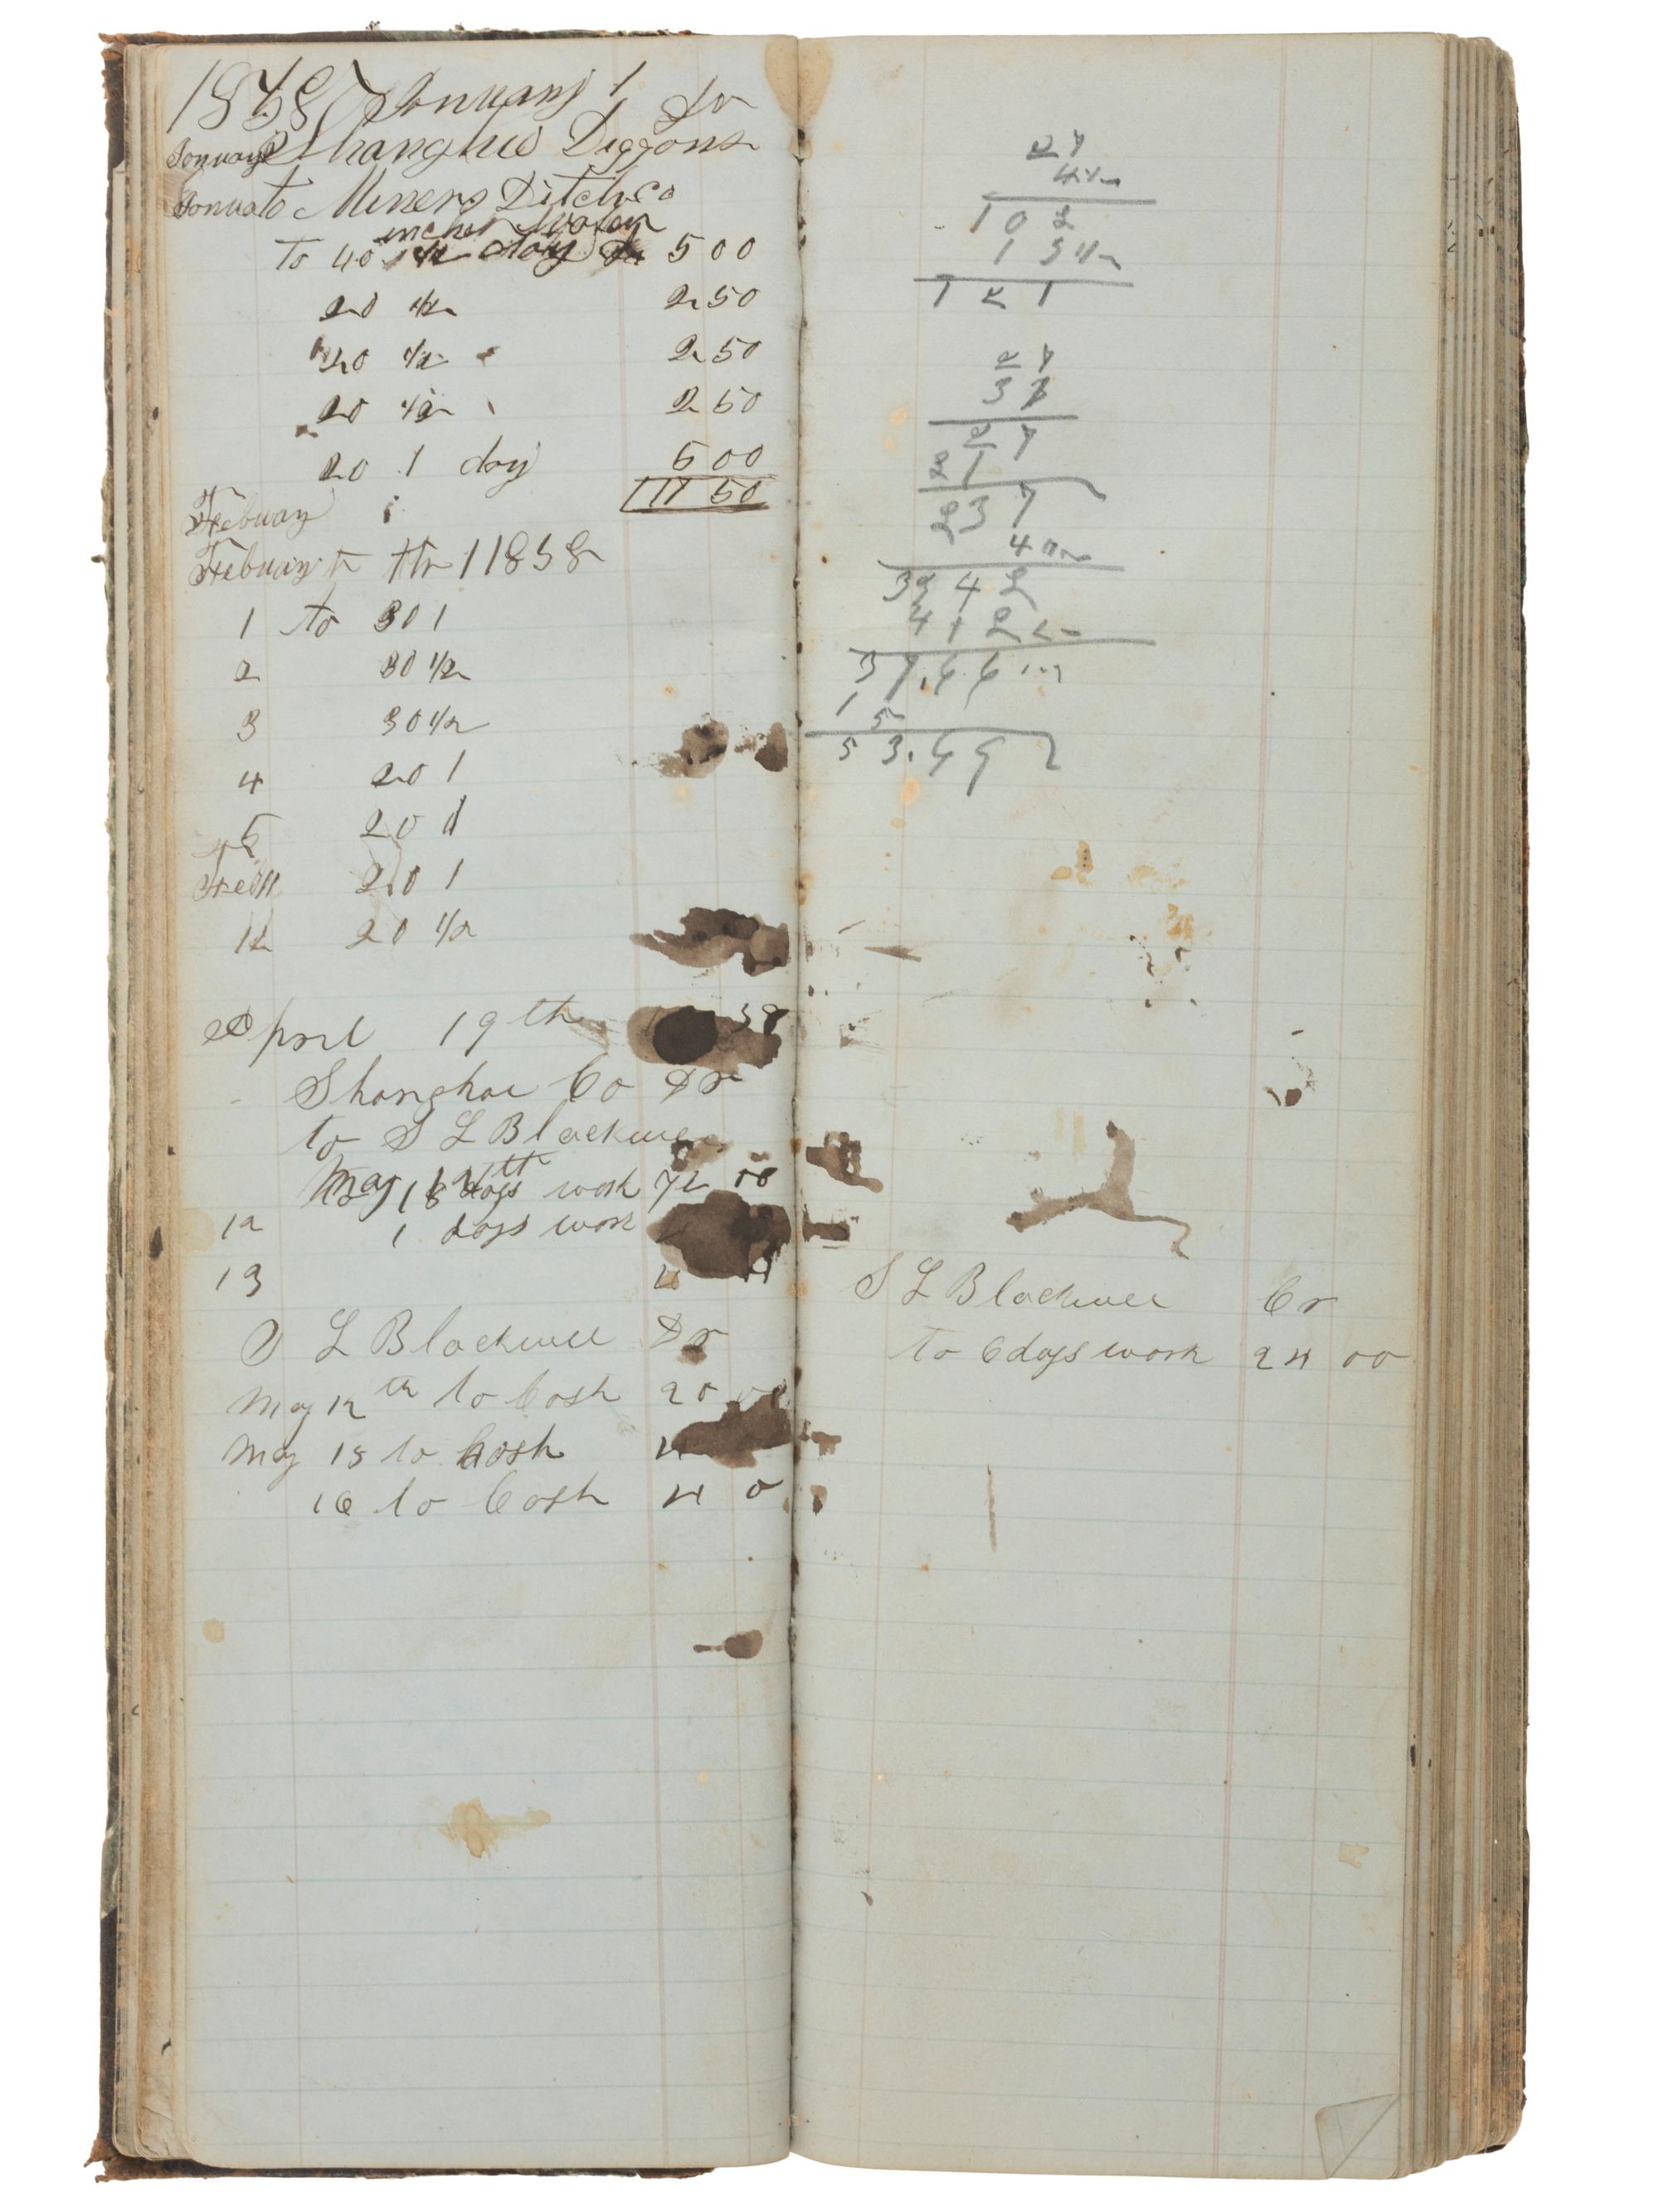 1858 January 1
January Shanghie Diggons Dr
Janua to Miners Ditch Co
inches Water
To 40 1/2 day 5 00
20 1/2 2 50
20 1/2 2 50
20 1/2 2 50
20 1 day 5 00
17 50
Febuay
Febuary th 1 1858
1 to 30 1
2 30 1/2
3 30 1/2
4 20 1
5 20 1
Feb 11 20 1
12 20 1/2
April 19th 58
Shanghae Co Dr
to S L Blackwell
May 11th
18 days work 72 00
12 1 days work
13 4
S L Blackwell Dr
May 12th to Cash 20 00
May 15 to Cash 4
16 to Cash 4 0
27
4
102
15
121
27
37
27
21
237
4
3342
412
37.66
1 5
53.69
S L Blackwell Cr
To 6 days work 24 00